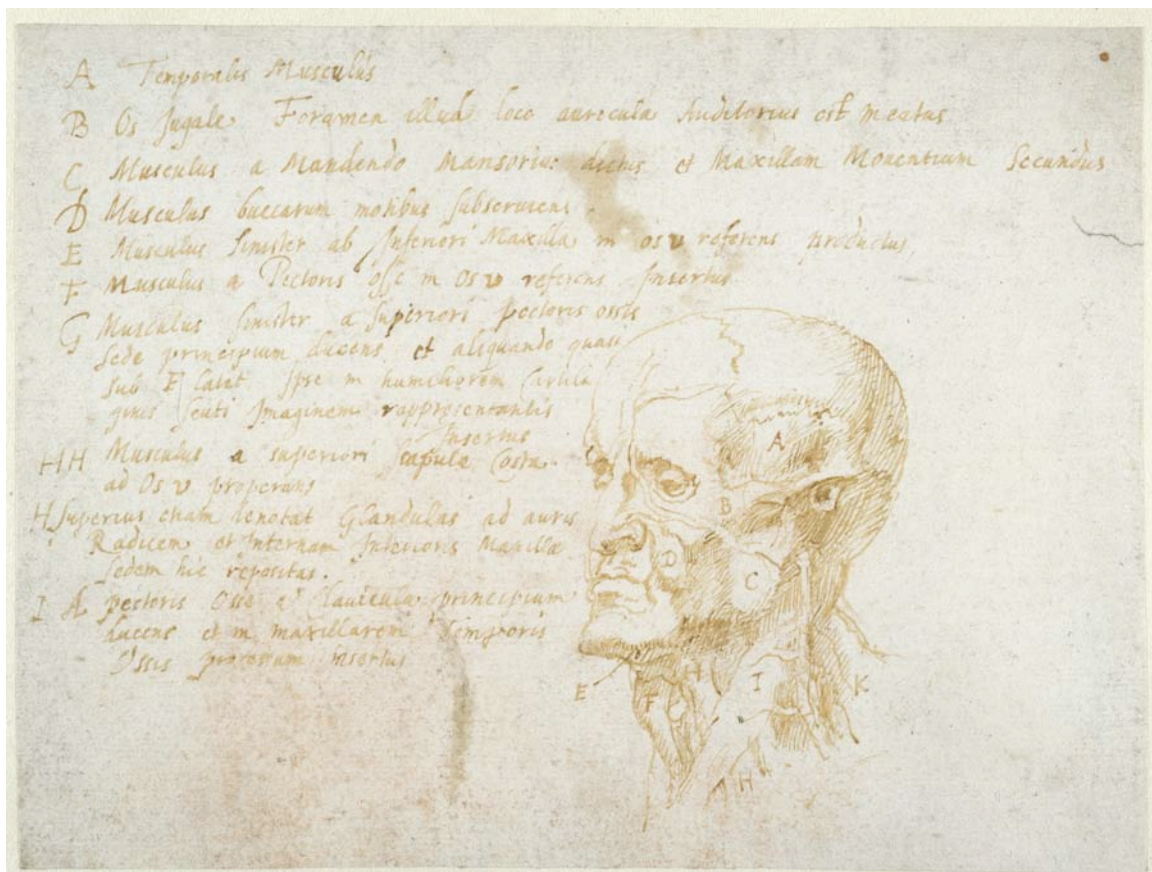 A Temporalis Musculus
B Os Jugale Foramen illud loco auricula Auditorius est meatus
C Musculus a Mandendo Mansorius dictus et Maxillam Mouentium Secundus
D Musculus buccarum motibus subseruiens
E Musculus sinister ab Inferiori Maxilla in os υ referens productus,
F Musculus a Pectoris osse in os υ referens Insertus
G Musculus sinister a superiori pectoris ossis
sede principium ducens et aliquando quasi
sub F latet Ipse in humiliorem Cartila
ginis scuti Imaginem rappresentantis
Insertus
HH Musculus a superiori scapulæ Costa
ad Os υ properans
H Superius etiam denotat Glandulas ad auris
Radicem et Internam Inferioris Maxillæ
sedem hic repositas.
I A pectoris Osse a Clauicula principium
ducens et in maxillarem Temporis
Ossis processum insertus
A
B
D
C
E
F
H
I
K
H